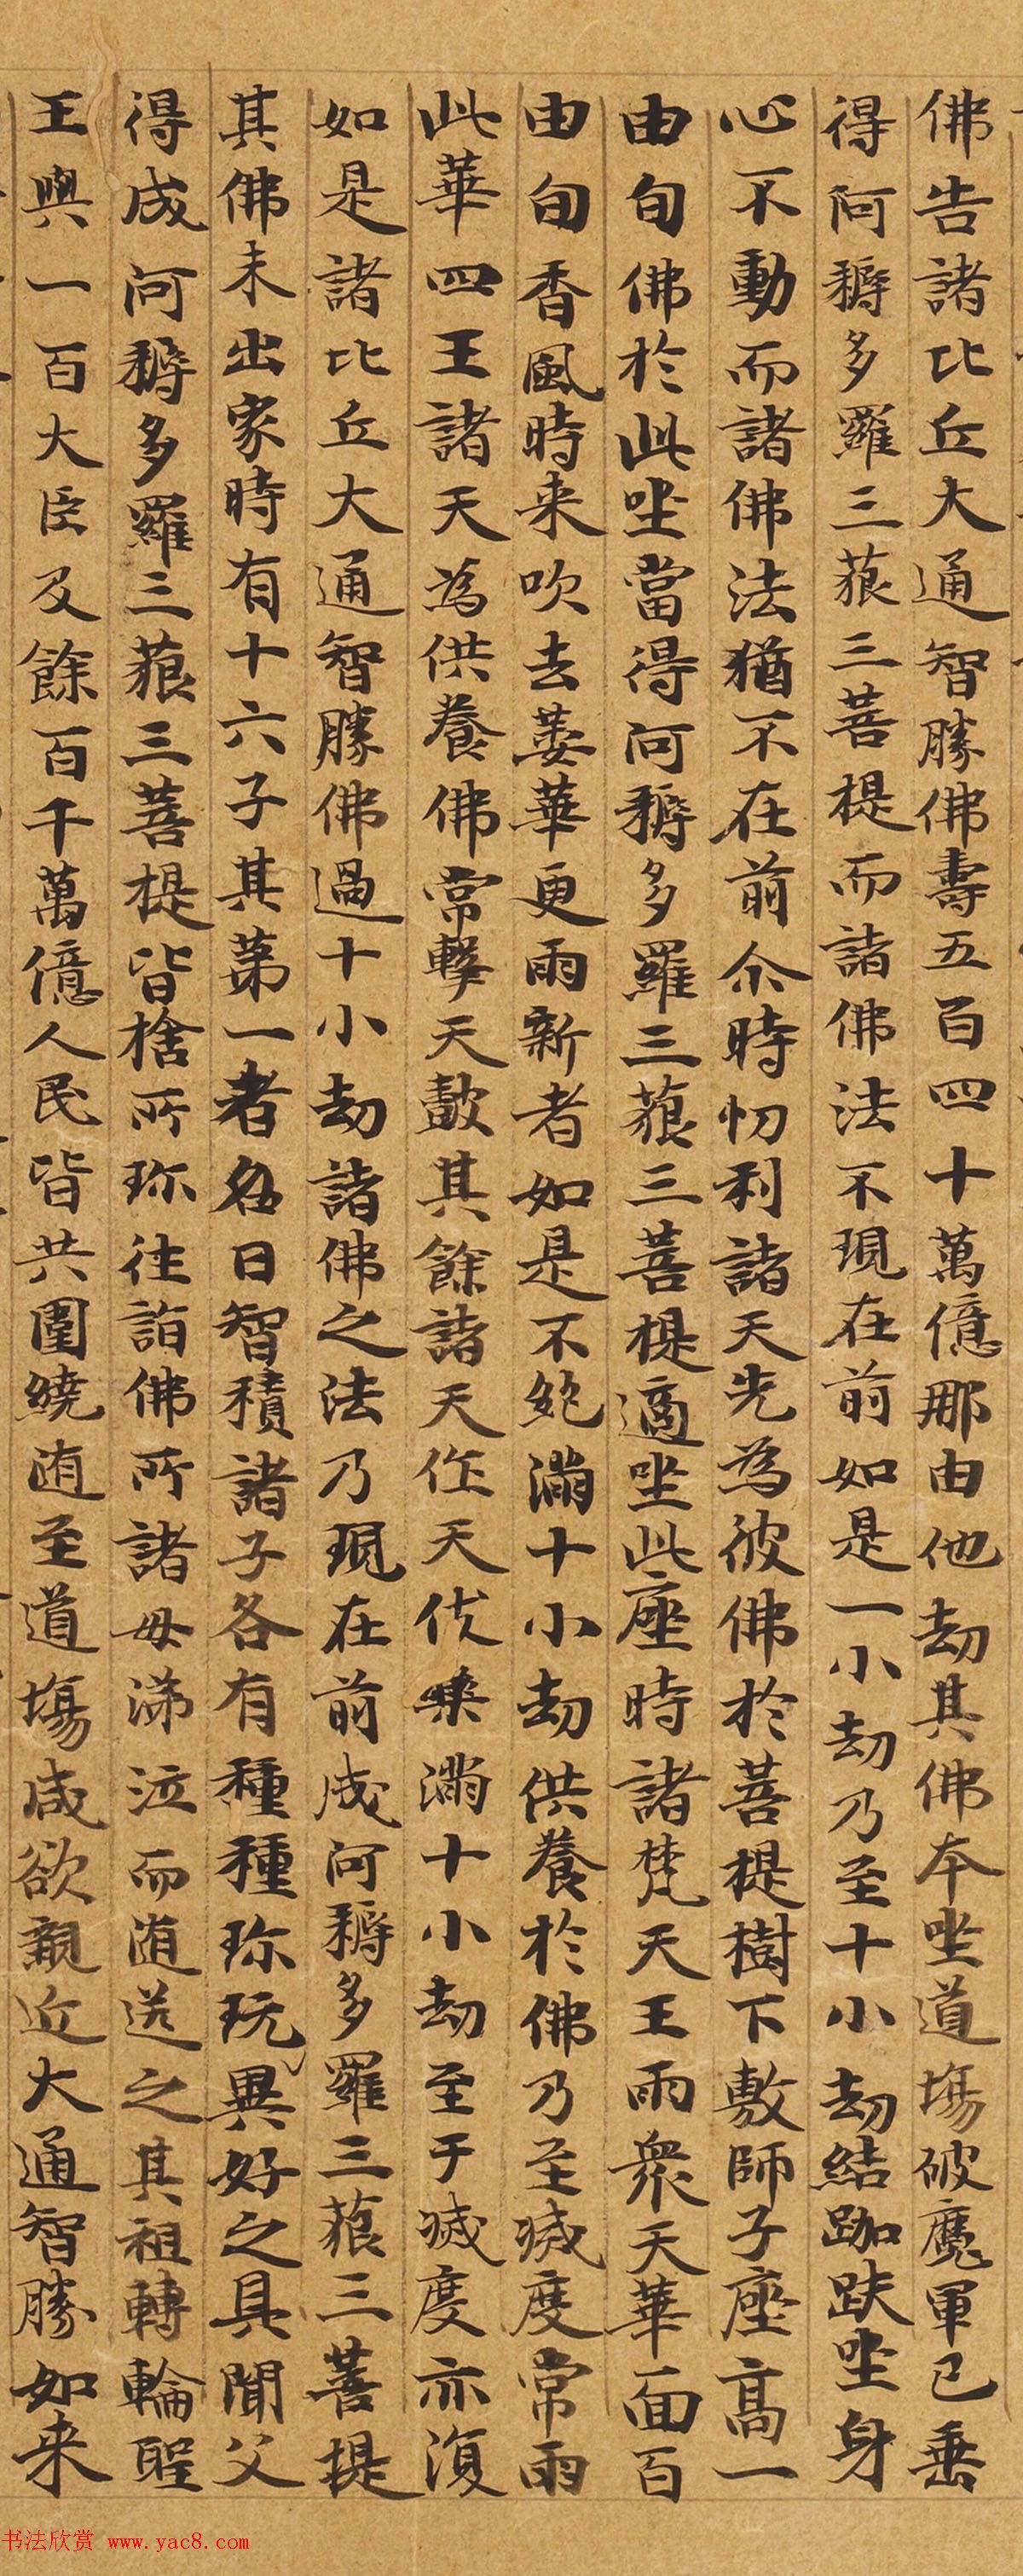 佛告諸比丘大通智勝佛壽五百四十萬億那由他劫其佛本坐道場破魔軍已垂
得阿耨多羅三藐三菩提而諸佛法不現在前如是一小劫乃至十小劫結跏趺坐身
心不動而諸佛法猶不在前尒時忉利諸天先為彼佛於菩提樹下敷師子座高一
由旬佛於此坐當得阿耨多羅三藐三菩提適坐此座時諸梵天王雨衆天華面百
由旬香風時来吹去萎華更雨新者如是不絶滿十小劫供養於佛乃至滅度常雨
此華四王諸天為供養佛常擊天鼓其餘諸天作天伎樂滿十小劫至于滅度亦復
如是諸比丘大通智勝佛過十小劫諸佛之法乃現在前成阿耨多羅三藐三菩提
其佛未出家時有十六子其第一者名曰智積諸子各有種種珎玩異好之具聞父
得成阿耨多羅三藐三菩提皆捨所珎往詣佛所諸母涕泣而隨送之其祖轉輪聖
王與一百大臣及餘百千萬億人民皆共圍繞隨至道場咸欲親近大通智勝如来
书法欣赏 www.yac8.com